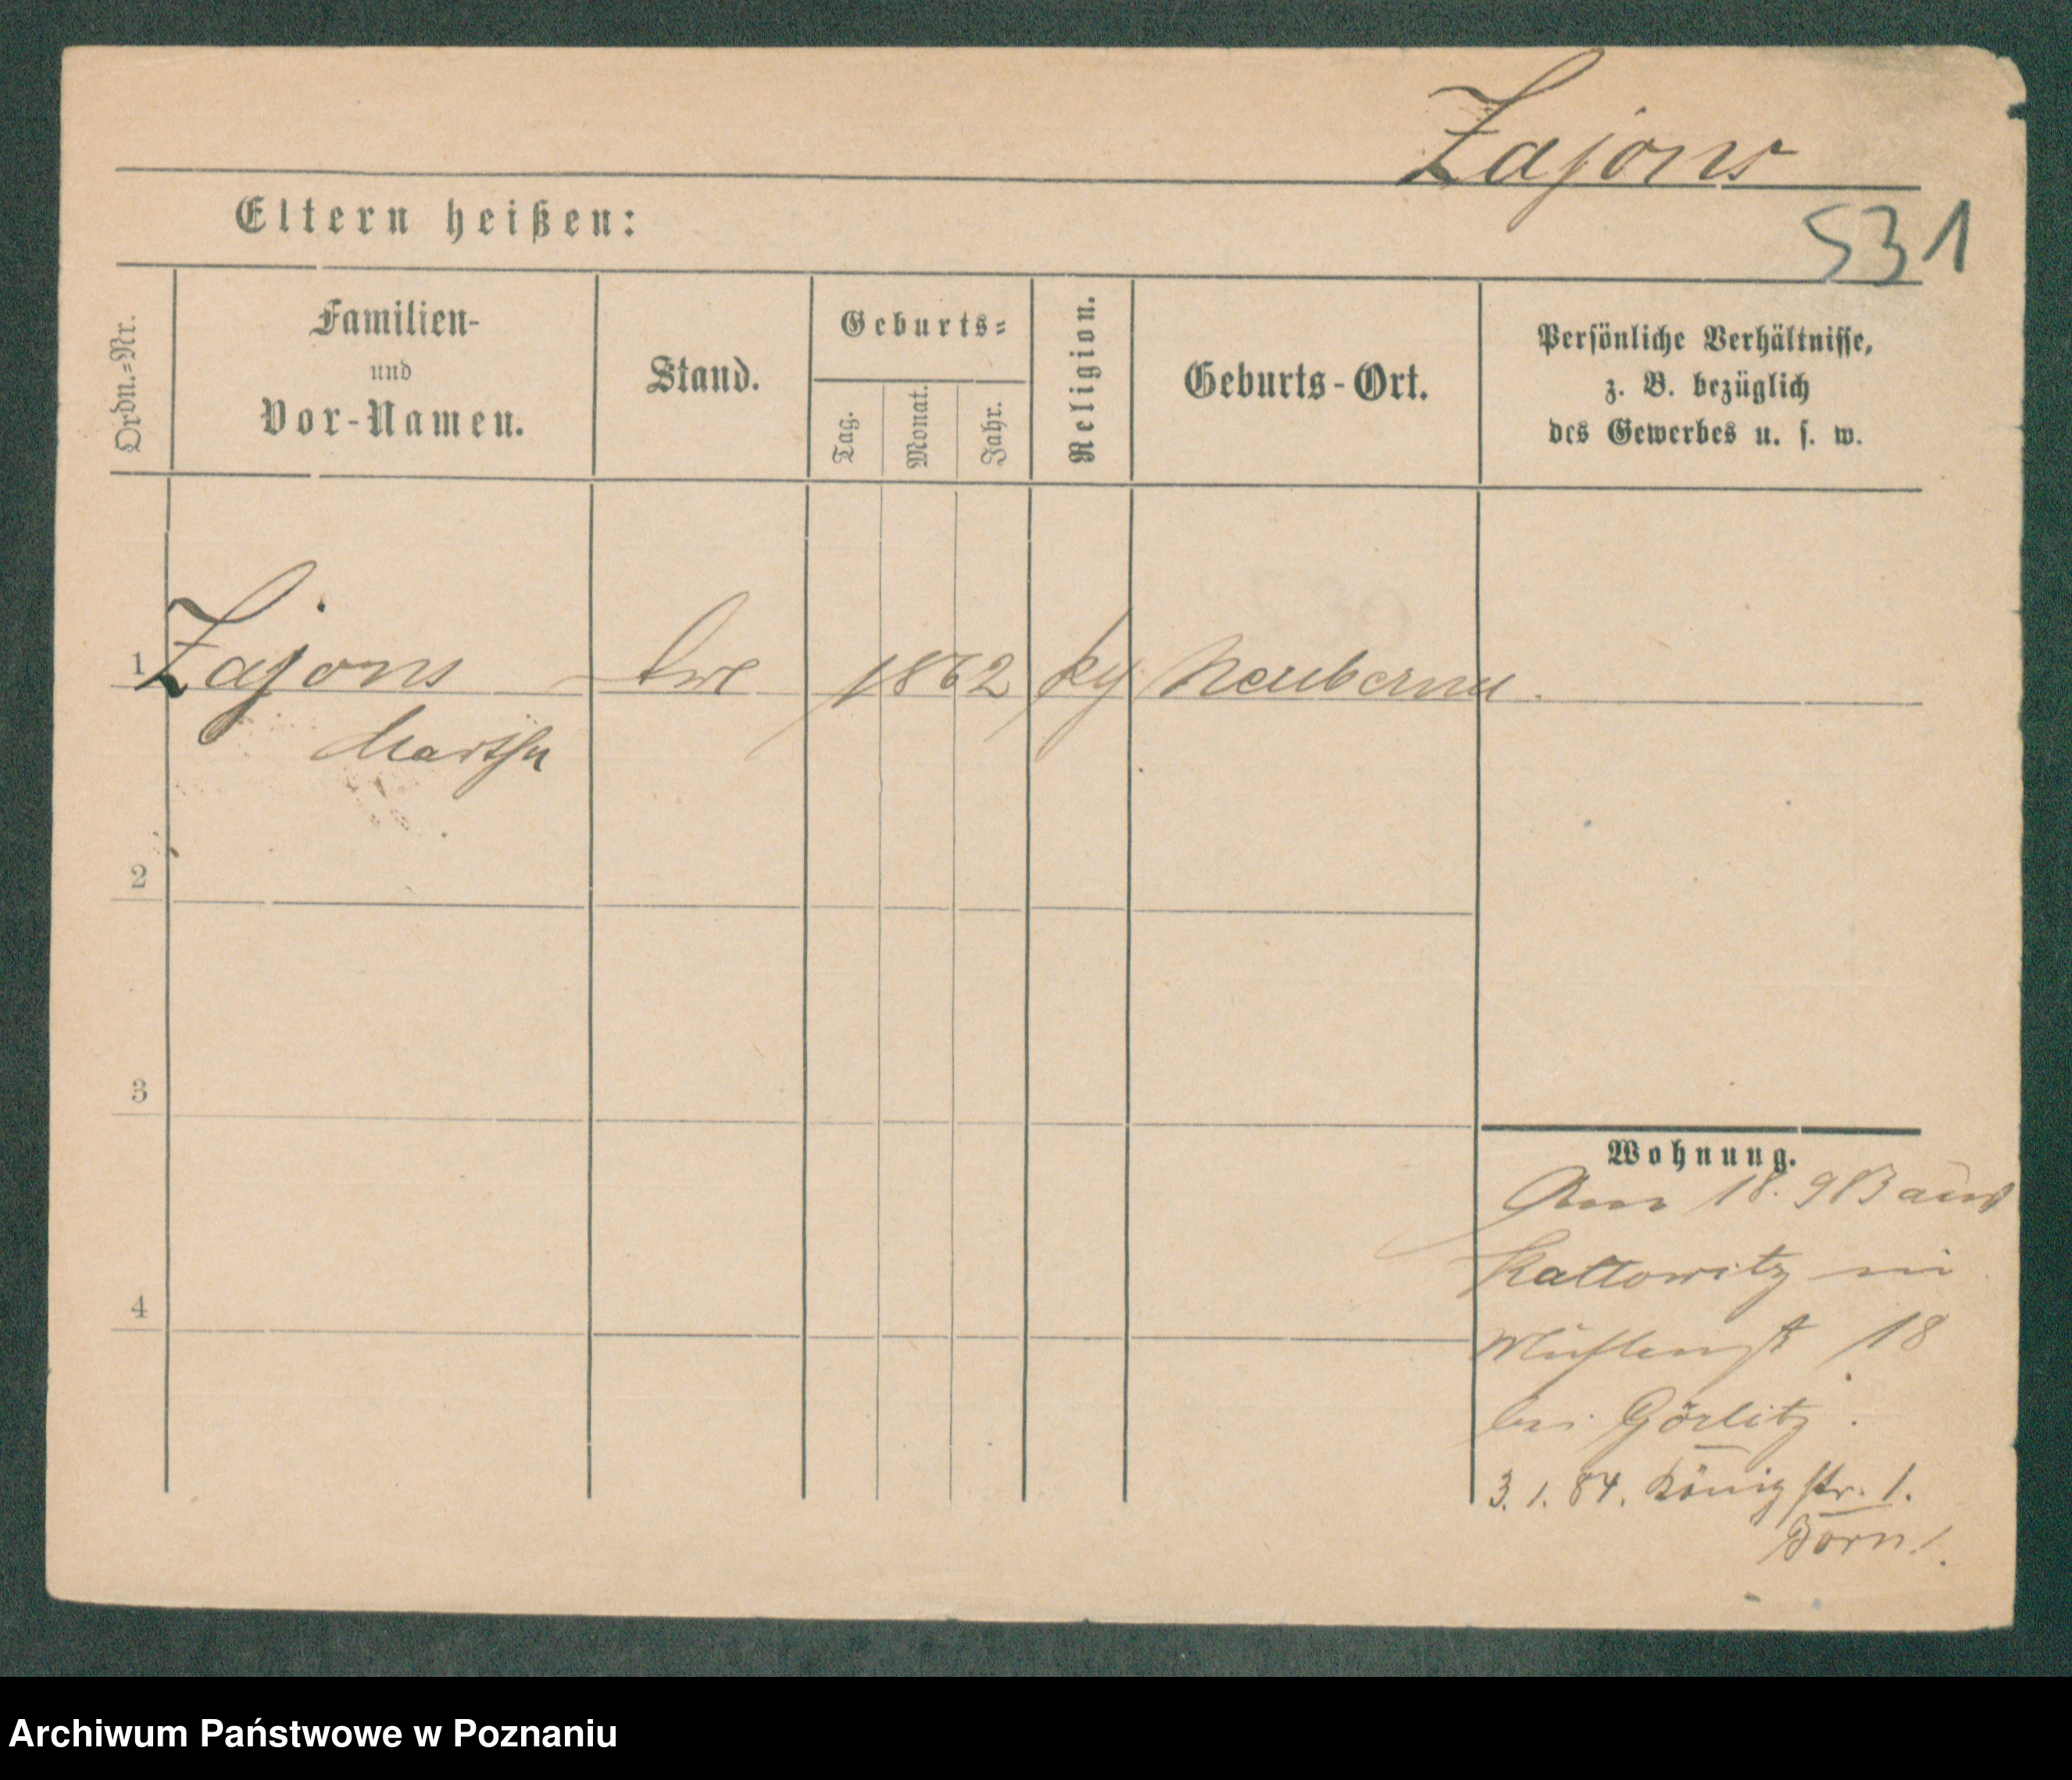 Zajons
531
Eltern heißen:
Ordn.=Nr.
Familien-
und
Vor-Namen.
Stand.
Geburts=
Tag.
Monat.
Jahr.
Religion.
Geburts-Ort.
Persönliche Verhältnisse,
z. B. bezüglich
des Gewerbes u. s. w.
1 Zajons 1862
Martha
2
3
4
Wohnung.
Am 18. 9 83 aus
Kattowitz in
Mühlenst 18
bei Görlitz.
3. 1. 84. Königstr. 1.
Born.
Archiwum Państwowe w Poznaniu